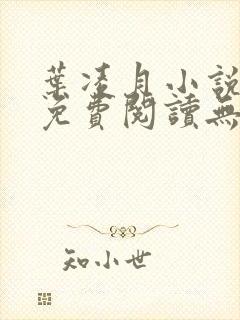 葉凌月小說
免費閱讀無
知小世